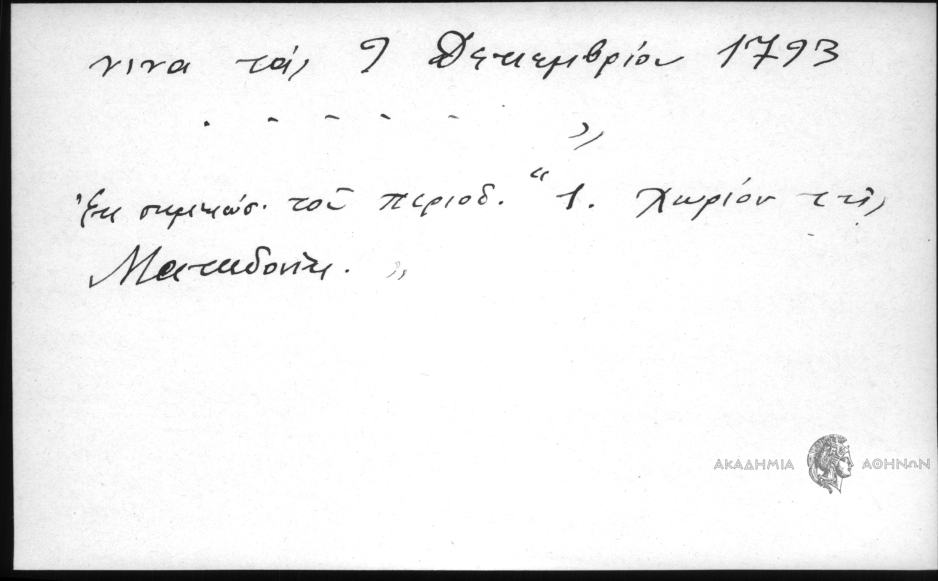 νινα τάς 9 Δεκεμβρίου 1793
. - - - - - "
Ἐκ σημειώσ. τοῦ περιοδ. " 1. χωρίον τῆς
Μακεδονίας. "
ΑΚΑΔΗΜΙΑ ΑΘΗΝΩΝ